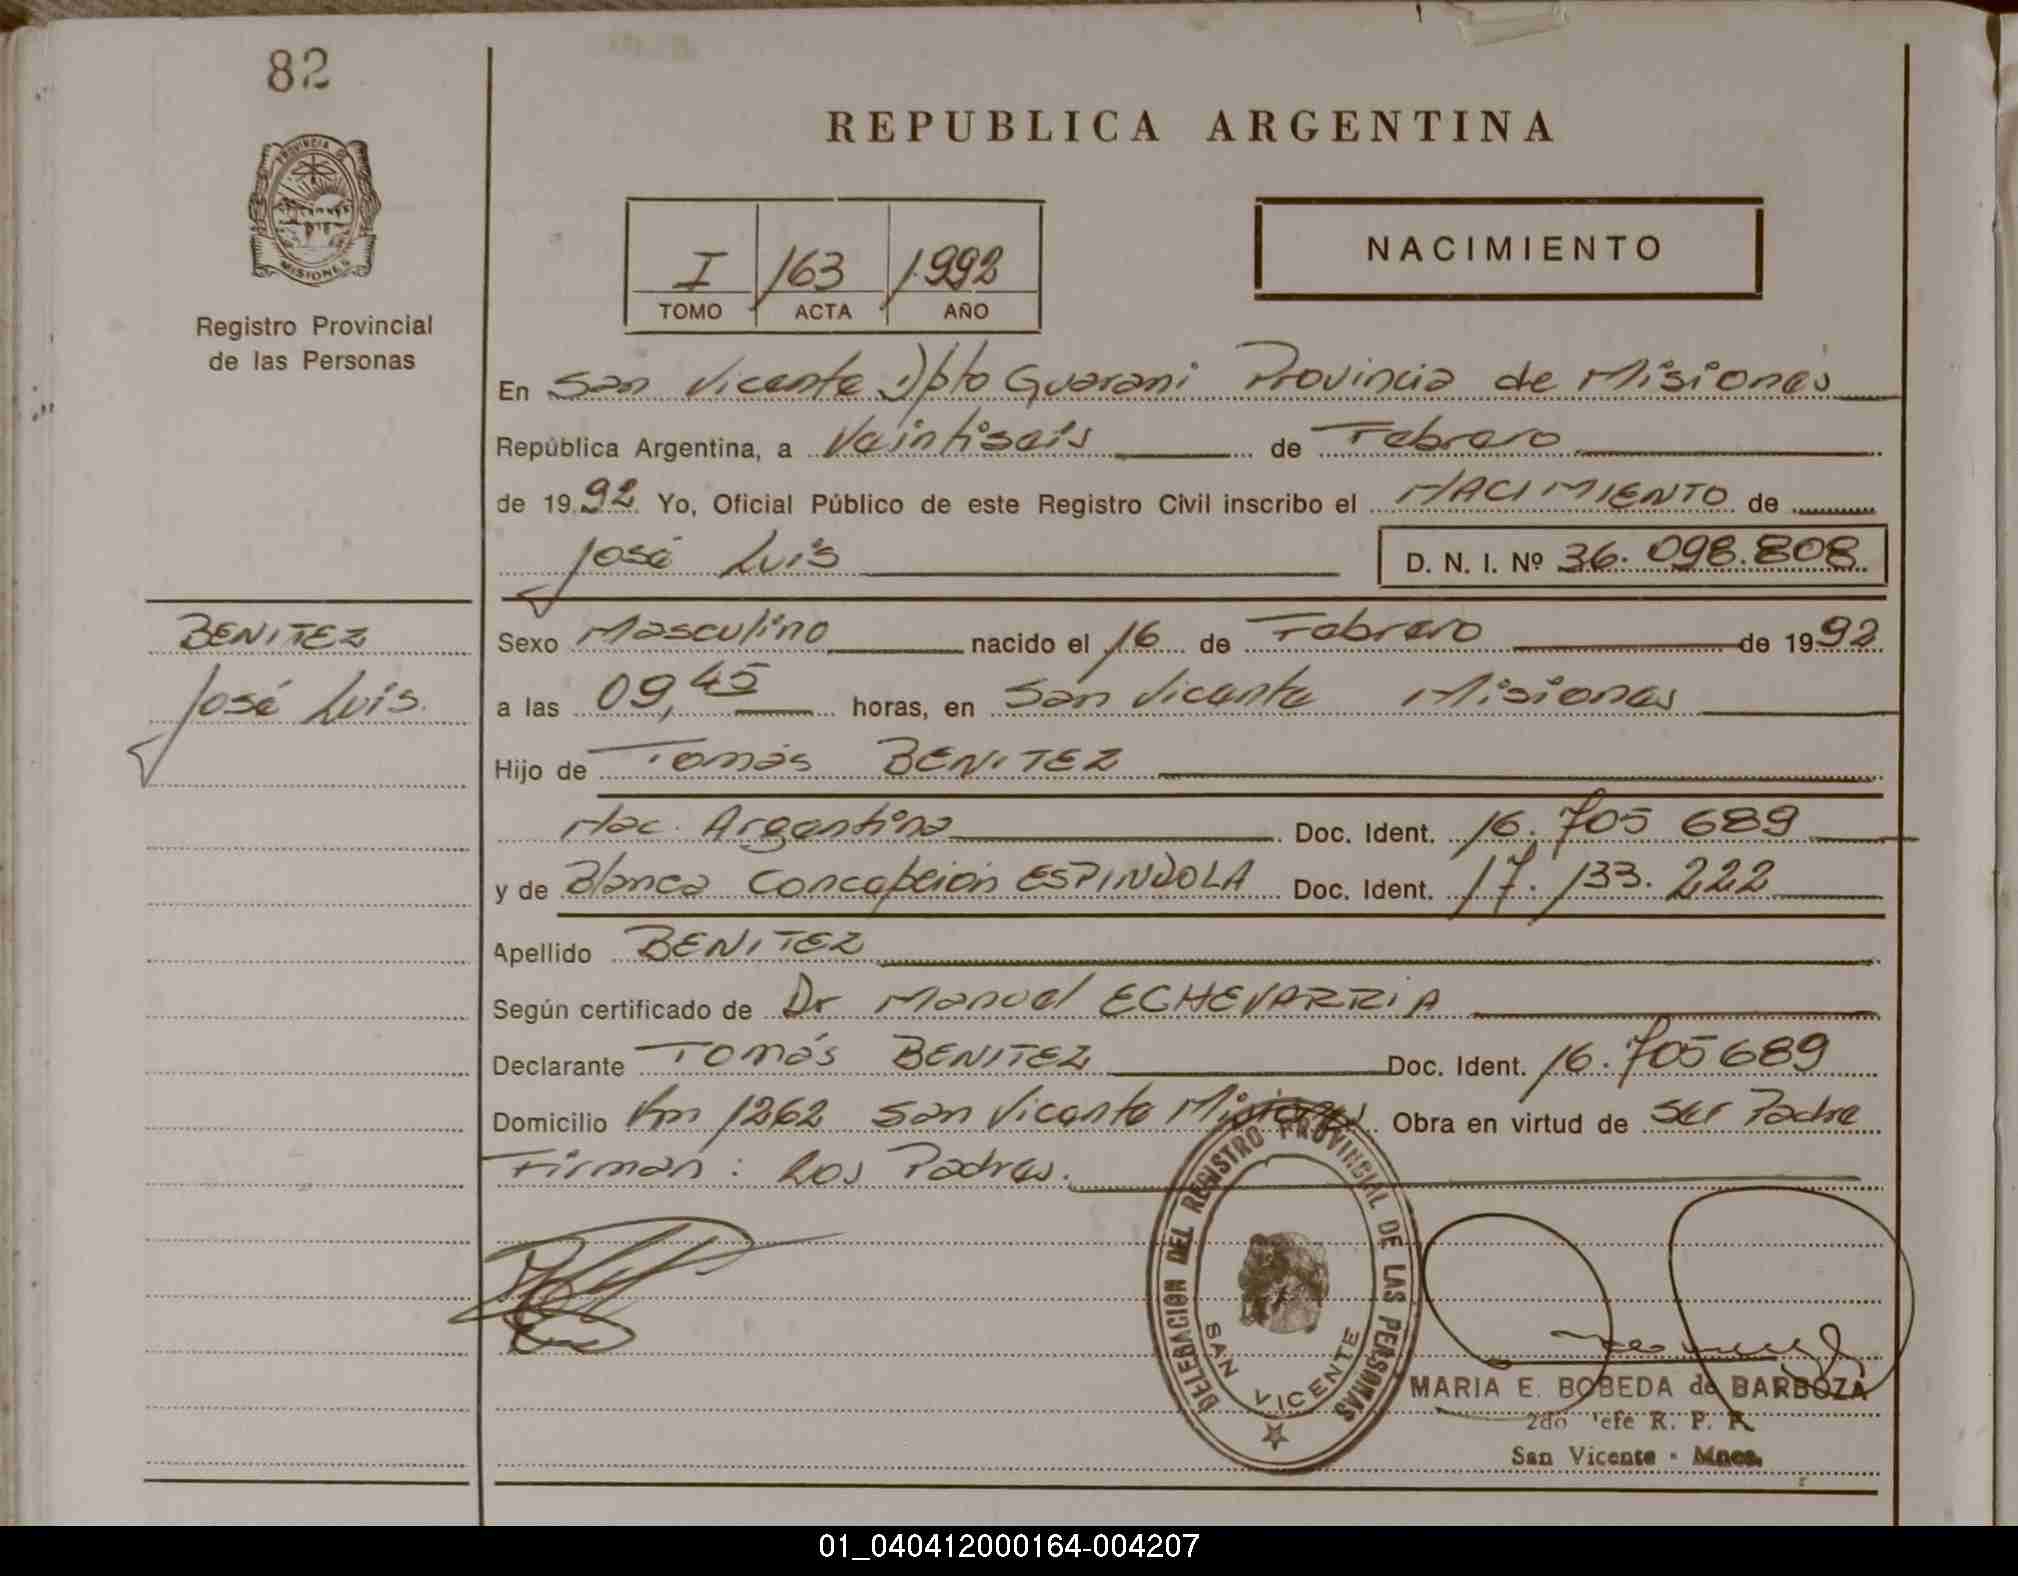 82
PROVINCIA DE
MISIONES
Registro Provincial
de las Personas
REPUBLICA ARGENTINA
I 163 1992
TOMO ACTA AÑO
NACIMIENTO
En San Vicente Dpto Guarani Provincia de Misiones
República Argentina, a Veintiseis de Febrero
de 1992 Yo, Oficial Público de este Registro Civil inscribo el NACIMIENTO de
José Luis D. N. I. Nº 36.098.808
BENITEZ
José Luis
Sexo Masculino nacido el 16 de Febrero de 1992
a las 09,45 horas, en San Vicente Misiones
Hijo de Tomás BENITEZ
Nac. Argentina Doc. Ident. 16.705 689
y de Blanca Concepción ESPINDOLA Doc. Ident. 17.133.222
Apellido BENITEZ
Según certificado de Dr Manuel ECHEVARRIA
Declarante Tomás BENITEZ Doc. Ident. 16.705689
Domicilio Km 1262 San Vicente Misiones Obra en virtud de Ser Padre
Firman: Los Padres.
DELEGACION DEL REGISTRO PROVINCIAL DE LAS PERSONAS
SAN VICENTE
MARIA E. BOBEDA de BARBOZA
2do Jefe R. P. P.
San Vicente - Mnes.
01_040412000164-004207